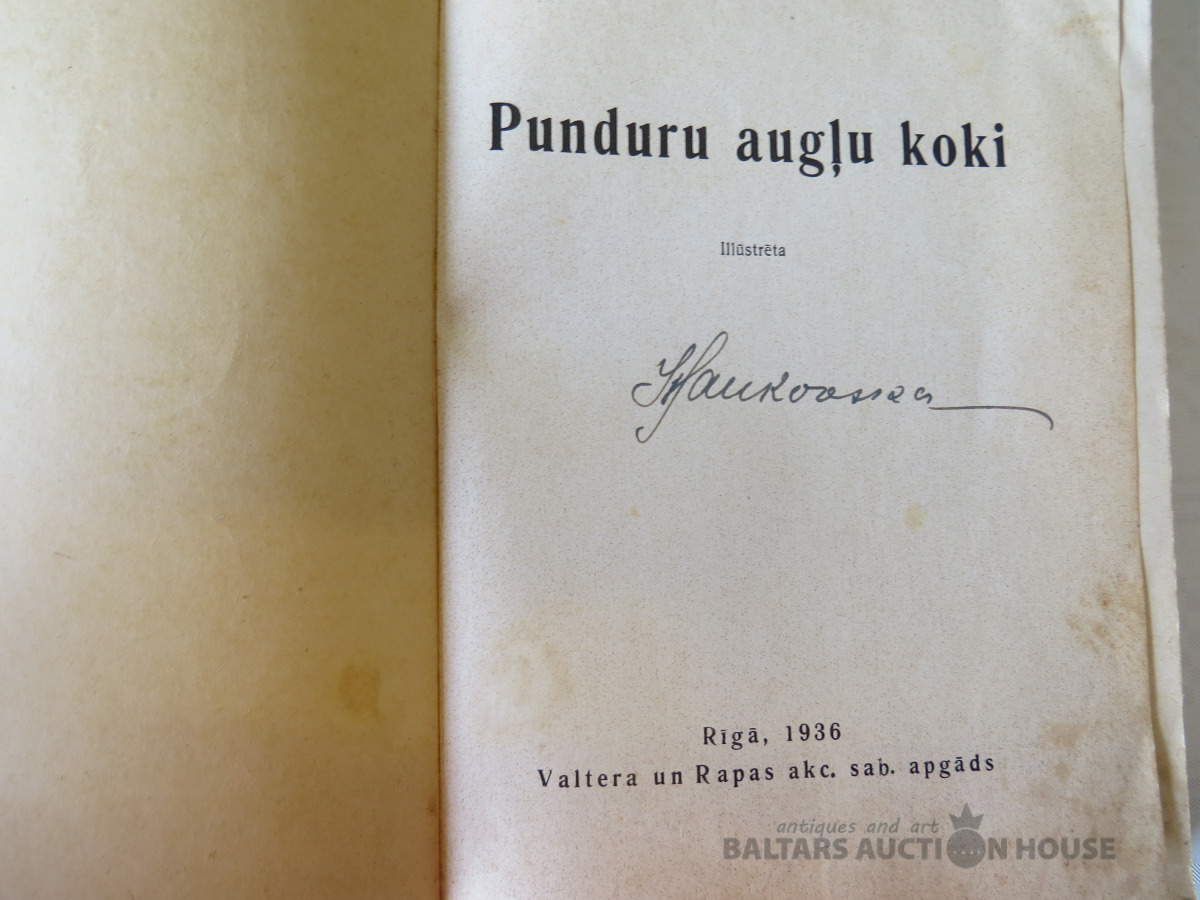 Punduru augļu koki
Illūstrēta
Rīgā, 1936
Valtera un Rapas akc. sab. apgāds
antiques and art
BALTARS AUCTION HOUSE